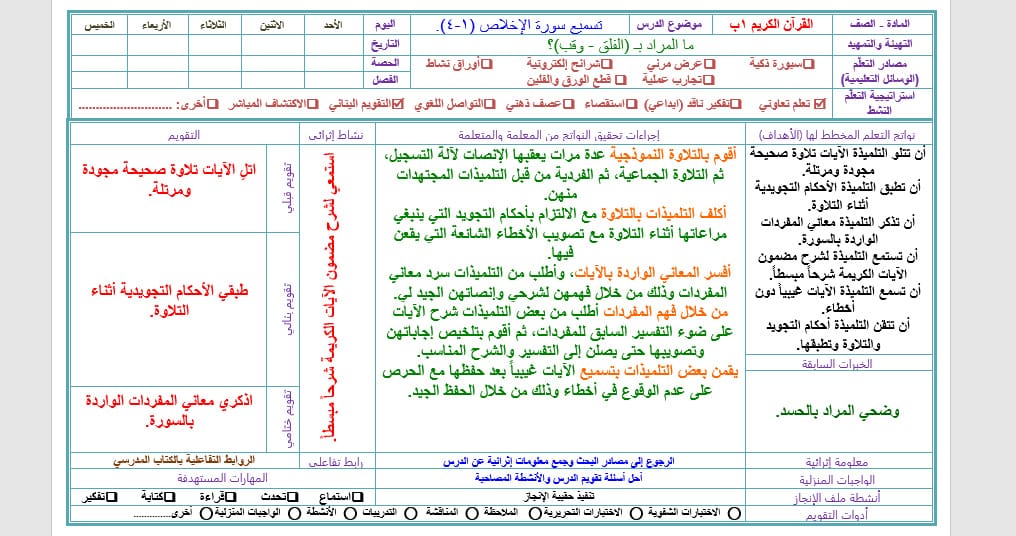 المادة - الصف
القرآن الكريم ١ب
موضوع الدرس
تسميع سورة الإخلاص (١-٤).
اليوم
الأحد
الاثنين
الثلاثاء
الأربعاء
الخميس
التهيئة والتمهيد
ما المراد بـ (الفلق - وقب)؟
التاريخ
مصادر التعلّم
(الوسائل التعليمية)
سبورة ذكية
عرض مرئي
شرائح إلكترونية
أوراق نشاط
تجارب عملية
قطع الورق والفلين
الحصة
الفصل
استراتيجية التعلّم
النشط
تعلم تعاوني
تفكير ناقد (ابداعي)
استقصاء
عصف ذهني
التواصل اللغوي
التقويم البنائي
الاكتشاف المباشر
أخرى: ..........................
نواتج التعلم المخطط لها (الأهداف)
إجراءات تحقيق النواتج من المعلمة والمتعلمة
نشاط إثرائي
التقويم
أن تتلو التلميذة الآيات تلاوة صحيحة
مجودة ومرتلة.
أن تطبق التلميذة الأحكام التجويدية
أثناء التلاوة.
أن تذكر التلميذة معاني المفردات
الواردة بالسورة.
أن تستمع التلميذة لشرح مضمون
الآيات الكريمة شرحاً مبسطاً.
أن تسمع التلميذة الآيات غيبياً دون
أخطاء.
أن تتقن التلميذة أحكام التجويد
والتلاوة وتطبقها.
الخبرات السابقة
وضحي المراد بالحسد.
أقوم بالتلاوة النموذجية عدة مرات يعقبها الإنصات لآلة التسجيل،
ثم التلاوة الجماعية، ثم الفردية من قبل التلميذات المجتهدات
منهن.
أكلف التلميذات بالتلاوة مع الالتزام بأحكام التجويد التي ينبغي
مراعاتها أثناء التلاوة مع تصويب الأخطاء الشائعة التي يقعن
فيها.
أفسر المعاني الواردة بالآيات، وأطلب من التلميذات سرد معاني
المفردات وذلك من خلال فهمهن لشرحي وإنصاتهن الجيد لي.
من خلال فهم المفردات أطلب من بعض التلميذات شرح الآيات
على ضوء التفسير السابق للمفردات، ثم أقوم بتلخيص إجاباتهن
وتصويبها حتى يصلن إلى التفسير والشرح المناسب.
يقمن بعض التلميذات بتسميع الآيات غيبياً بعد حفظها مع الحرص
على عدم الوقوع في أخطاء وذلك من خلال الحفظ الجيد.
استمعي لشرح مضمون الآيات الكريمة شرحاً مبسطاً.
تقويم قبلي
اتل الآيات تلاوة صحيحة مجودة
ومرتلة.
تقويم بنائي
طبقي الأحكام التجويدية أثناء
التلاوة.
تقويم ختامي
اذكري معاني المفردات الواردة
بالسورة.
معلومة إثرائية
الرجوع إلى مصادر البحث وجمع معلومات إثرائية عن الدرس
رابط تفاعلي
الروابط التفاعلية بالكتاب المدرسي
الواجبات المنزلية
أحل أسئلة تقويم الدرس والأنشطة المصاحبة
المهارات المستهدفة
أنشطة ملف الإنجاز
تنفيذ حقيبة الإنجاز
استماع
تحدث
قراءة
كتابة
تفكير
أدوات التقويم
الاختبارات الشفوية
الاختبارات التحريرية
الملاحظة
المناقشة
التدريبات
الأنشطة
الواجبات المنزلية
أخرى..............